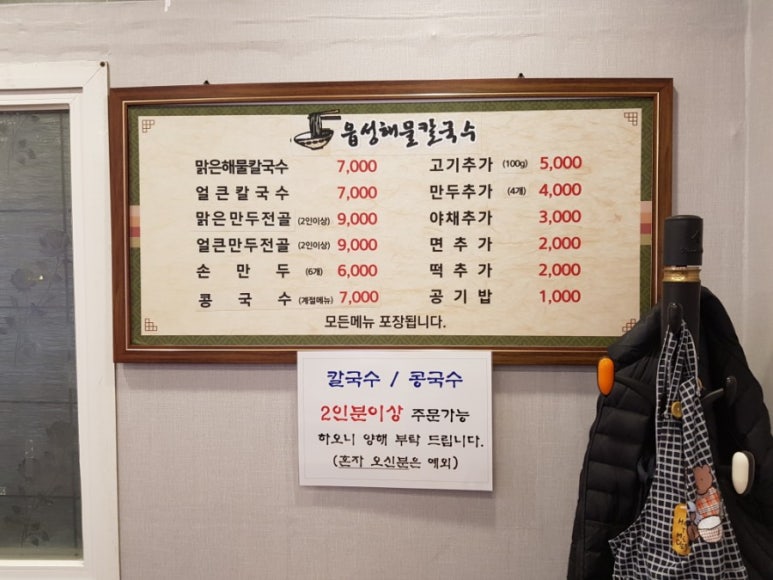 읍성해물칼국수
맑은해물칼국수 7,000
얼큰칼국수 7,000
맑은만두전골 (2인이상) 9,000
얼큰만두전골 (2인이상) 9,000
손만두 (6개) 6,000
콩국수 (계절메뉴) 7,000
고기추가 (100g) 5,000
만두추가 (4개) 4,000
야채추가 3,000
면추가 2,000
떡추가 2,000
공기밥 1,000
모든메뉴 포장됩니다.
칼국수 / 콩국수
2인분이상 주문가능
하오니 양해 부탁 드립니다.
(혼자 오신분은 예외)